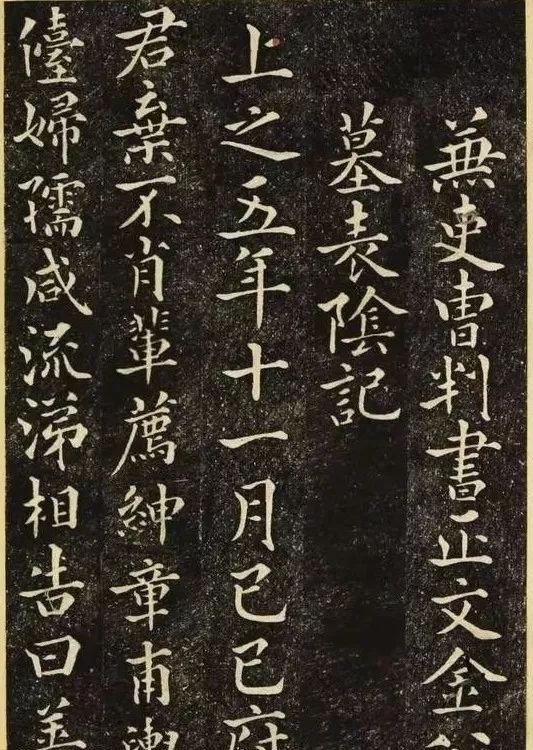 兼吏曹判書正文金公
墓表陰記
上之五年十一月己巳府
君棄不肖輩薦紳章甫輿
儓婦孺咸流涕相告曰善